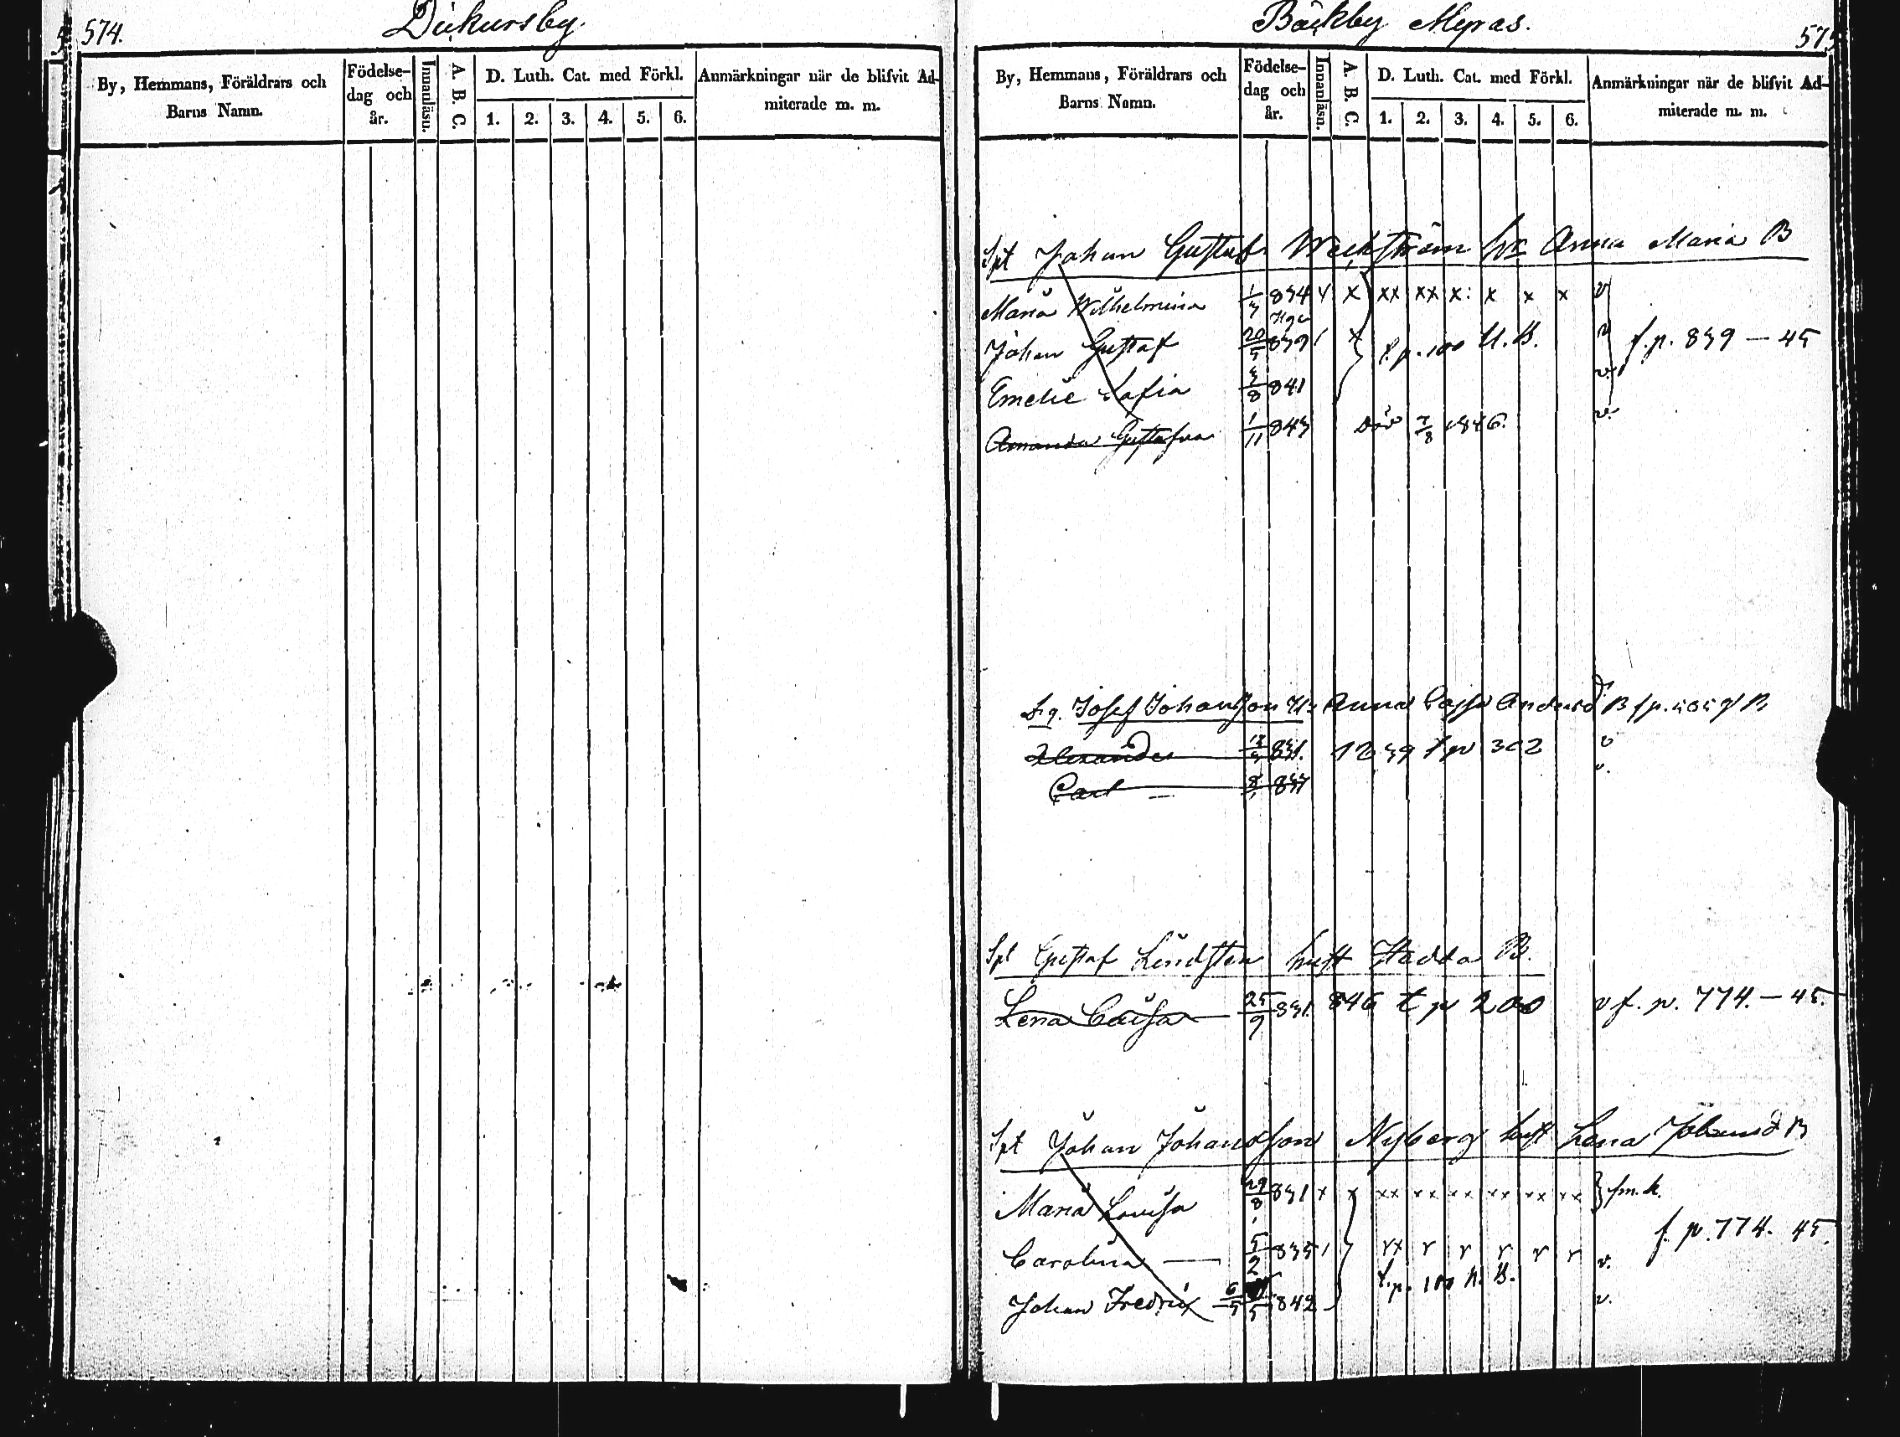 574.
Dickursby
By, Hemmans, Föräldrars och
Barns Namn.
Födelse-
dag och
år.
Innanläsn.
A. B. C.
D. Luth. Cat. med Förkl.
1. 2. 3. 4. 5. 6.
Anmärkningar när de blifvit Ad-
miterade m. m.
Bäckby Myras.
575
By, Hemmans, Föräldrars och
Barns Namn.
Födelse-
dag och
år.
Innanläsn.
A. B. C.
D. Luth. Cat. med Förkl.
1. 2. 3. 4. 5. 6.
Anmärkningar när de blifvit Ad-
miterade m. m.
Spt Johan Gustaf Weckström Anna Maria B
Maria Wilhelmina 834 x xx xx x: x x x v
Johan Gustaf 20/5 839 x t.p. 100 U.B. v f.p. 839 – 45
Emelie Sofia 3/8 841 v.
Amanda Gustafva 1/11 843 död 7/8 1846. v.
Josef Johansson Anna Cajsa Andersd B
Alexander 831. 1839 t p 302 v
Carl 8 v.
Spt Gustaf Lindsten hust Hedda B.
Lena Caisa 25/9 831 846 t p 200 v f. p. 774. – 45.
Spt Johan Johansson Nyberg hust Lena Johansd B
Maria Lovisa 29/8 831 x x xx xx xx xx xx xx
f. p. 774. 45.
Carolina — 5/2 835 rx r r r r r v.
t.p. 100 U.B.
Johan Fredrik 842 v.